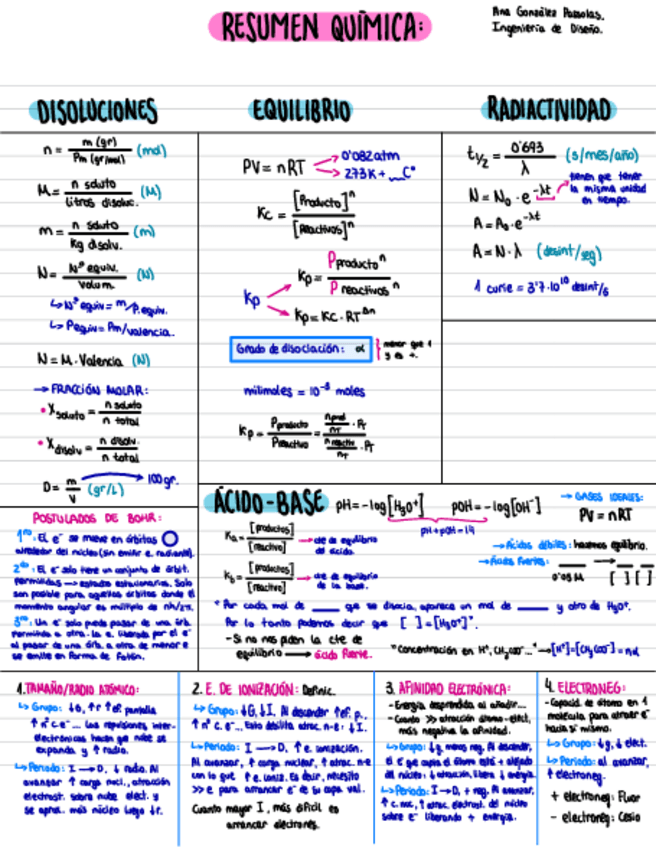 RESUMEN QUÍMICA:
Ana González Passolas.
Ingeniería de Diseño.
DISOLUCIONES
n = m (gr) / Pm (gr/mol) (mol)
M = n soluto / litros disoluc. (M)
m = n soluto / Kg disolv. (m)
N = Nº equiv. / Volum. (N)
↳ Nº equiv = m/P.equiv.
↳ Pequiv = Pm/valencia.
N = M · Valencia (N)
→ FRACCIÓN MOLAR:
• X soluto = n soluto / n total
• X disolv = n disolv. / n total
D = m / V (gr/L) → 100 gr.
EQUILIBRIO
PV = nRT → 0'082 atm
→ 273 K + __Cº
Kc = [Producto]ⁿ / [Reactivos]ⁿ
Kp
Kp = P producto ⁿ / P reactivos ⁿ
Kp = Kc · RT^Δn
Grado de disociación: α
menor que 1
y es +.
milimoles = 10⁻³ moles
Kp = Pproducto / Preactivo = n prod / nT · PT / n reactiv / nT · PT
RADIACTIVIDAD
t½ = 0'693 / λ (s/mes/año)
N = N₀ · e^-λt
tienen que tener
la misma unidad
en tiempo.
A = A₀ · e^-λt
A = N · λ (desint/seg)
1 curie = 3'7·10¹⁰ desint/s
ÁCIDO-BASE
pH = -log[H₃O⁺] pOH = -log[OH⁻]
pH + pOH = 14
→ GASES IDEALES:
PV = nRT
Ka = [productos] / [reactivo] → cte de equilibrio
del ácido.
Kb = [productos] / [reactivo] → cte de equilibrio
de la base.
→ Ácidos débiles: hacemos equilibrio.
→ Ácidos fuertes:
0'05 M [ ] [ ]
* Por cada mol de ____ que se disocia, aparece un mol de ____ y otro de H₃O⁺.
Por lo tanto podemos decir que [ ] = [H₃O⁺]
- Si no nos piden la cte de
equilibrio → ácido fuerte.
"Concentración en H⁺, CH₃COO⁻..." → [H⁺] = [CH₃COO⁻] = nα
POSTULADOS DE BOHR:
1ro: El e⁻ se mueve en órbitas
alrededor del núcleo (sin emitir e. radiante).
2do: El e⁻ solo tiene un conjunto de órbit.
permitidas → estados estacionarios. Solo
son posible para aquellas órbitas donde el
momento angular es múltiplo de nh/2π.
3ro: Un e⁻ solo puede pasar de una órb.
permitida a otra. La e. liberada por el e⁻
al pasar de una órb. a otra de menor e
se emite en forma de fotón.
1. TAMAÑO/RADIO ATÓMICO:
↳ Grupo: ↓G, ↑r ↑ef. pantalla
↑ nº c. e⁻ ... Las repulsiones inter-
electrónicas hacen que nube se
expanda y ↑ radio.
↳ Periodo: I → D, ↓ radio. Al
avanzar ↑ carga nucl., atracción
electrost. sobre nube elect. y
se aprox. más núcleo luego ↓r.
2. E. DE IONIZACIÓN: Definic.
↳ Grupo: ↓G, ↓I. Al descender ↑ef. p.,
↑ nº c. e⁻. Esto debilita atrac. n-e: ↓I.
↳ Periodo: I → D, ↑ e. ionización.
Al avanzar, ↑ carga nuclear, ↑ atrac. n-e
con lo que ↑ e. ioniz. Es decir, necesito
>> e para arrancar e⁻ de su capa val.
Cuanto mayor I, más difícil es
arrancar electrones.
3. AFINIDAD ELECTRÓNICA:
- Energía desprendida al añadir...
- Cuando >> atracción átomo-elect,
más negativa la afinidad.
↳ Grupo: ↓g, menos neg. Al descender,
el e⁻ que capta el átomo está + alejado
del núcleo: ↓ atracción, libera ↓ energía.
↳ Periodo: I → D, + neg. Al avanzar,
↑ c. nuc, ↑ atrac. electrost. del núcleo
sobre e⁻ liberando + energía.
4. ELECTRONEG:
- Capacid. de átomo en 1
molécula para atraer e⁻
hacia sí mismo.
↳ Grupo: ↓g, ↓ elect.
↳ Periodo: al avanzar,
↑ electroneg.
+ electroneg: Fluor
- electroneg: Cesio